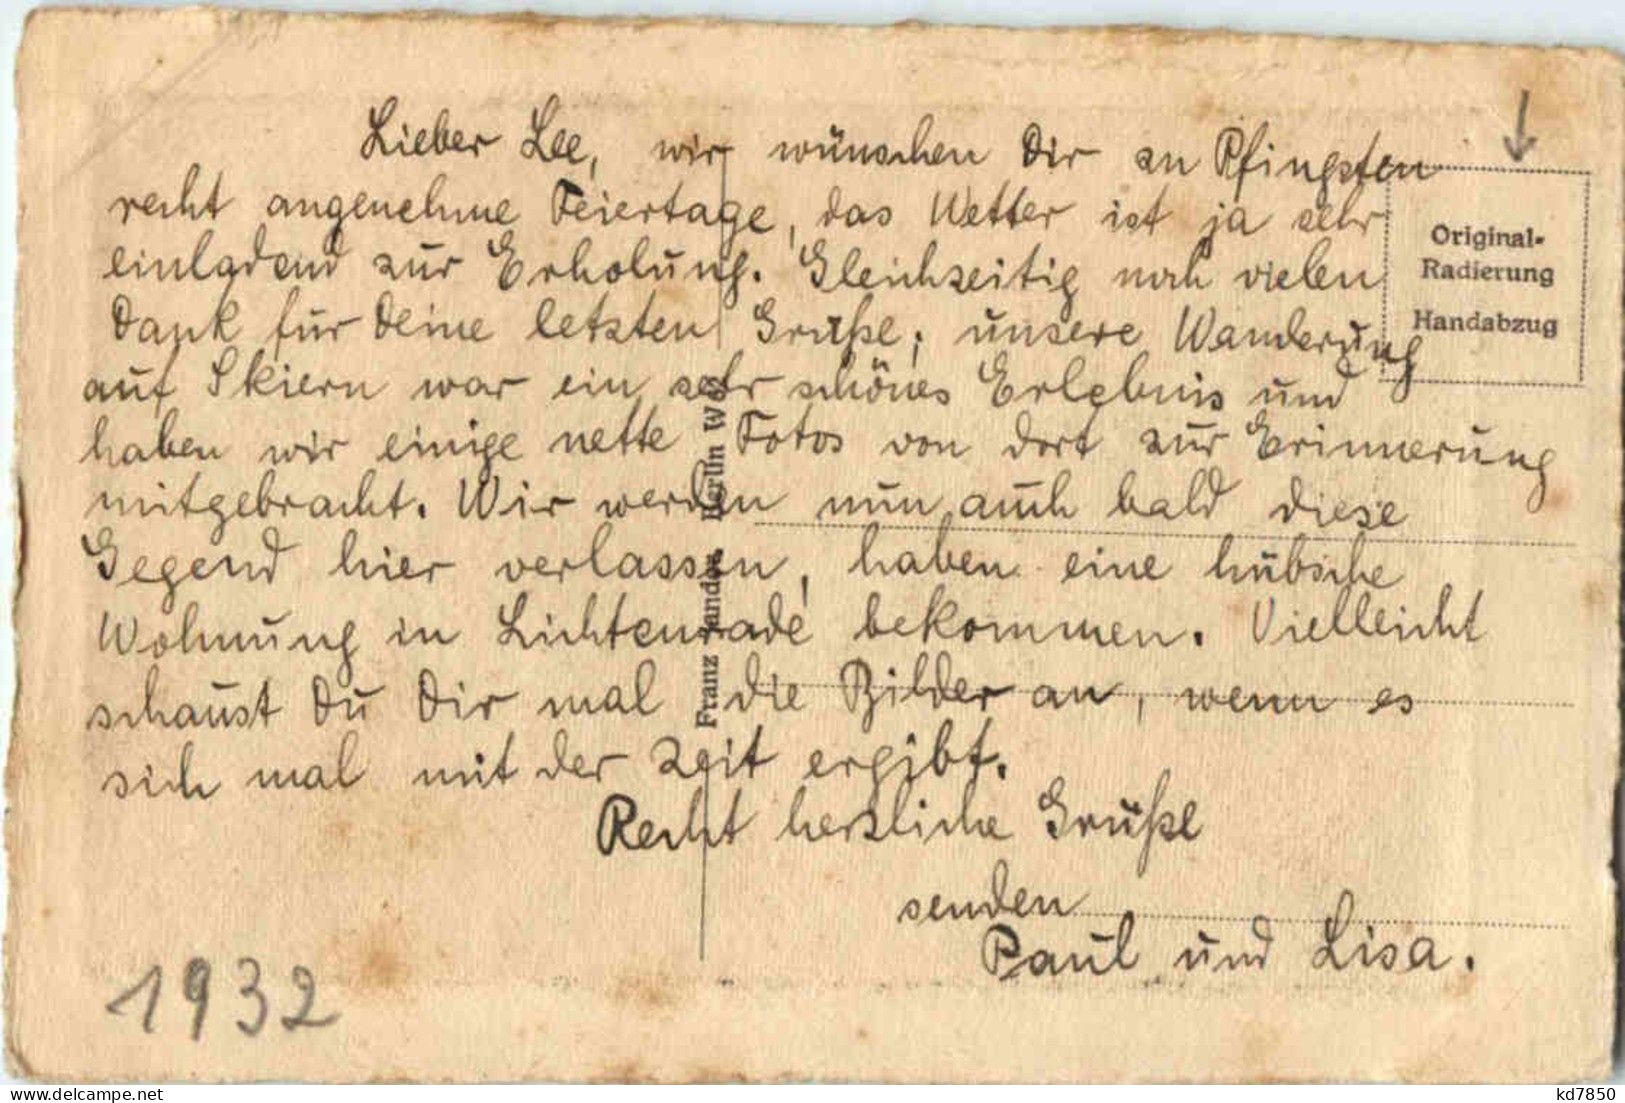 Lieber Lee, wir wünschen Dir zu Pfingsten
recht angenehme Feiertage, das Wetter ist ja sehr
einladend zur Erholung. Gleichzeitig noch vielen
Dank für Deine letzten Grüße, unsere Wanderung
auf Skiern war ein sehr schönes Erlebnis und
haben wir einige nette Fotos von dort zur Erinnerung
mitgebracht. Wir werden nun auch bald diese
Gegend hier verlassen, haben eine hübsche
Wohnung in Lichtenrade bekommen. Vielleicht
schaust Du Dir mal die Bilder an, wenn es
sich mal mit der Zeit ergibt.
Recht herzliche Grüße
senden
Paul und Lisa.
1932
Original-
Radierung
Handabzug
Franz Berlin W
kd7850